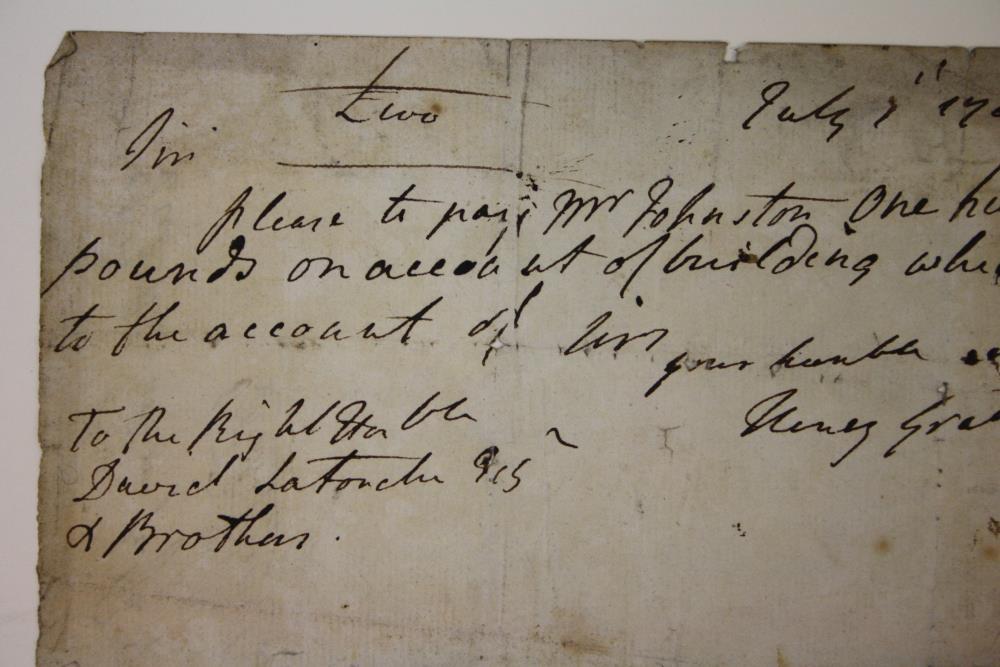 £100 July 1st 179
Sir
please to pay Mr Johnston One hu
pounds on account of building whi
to the account of Sir
your humble
Henry Gra
To the Right Honble
David Latouche Esq
& Brothers.